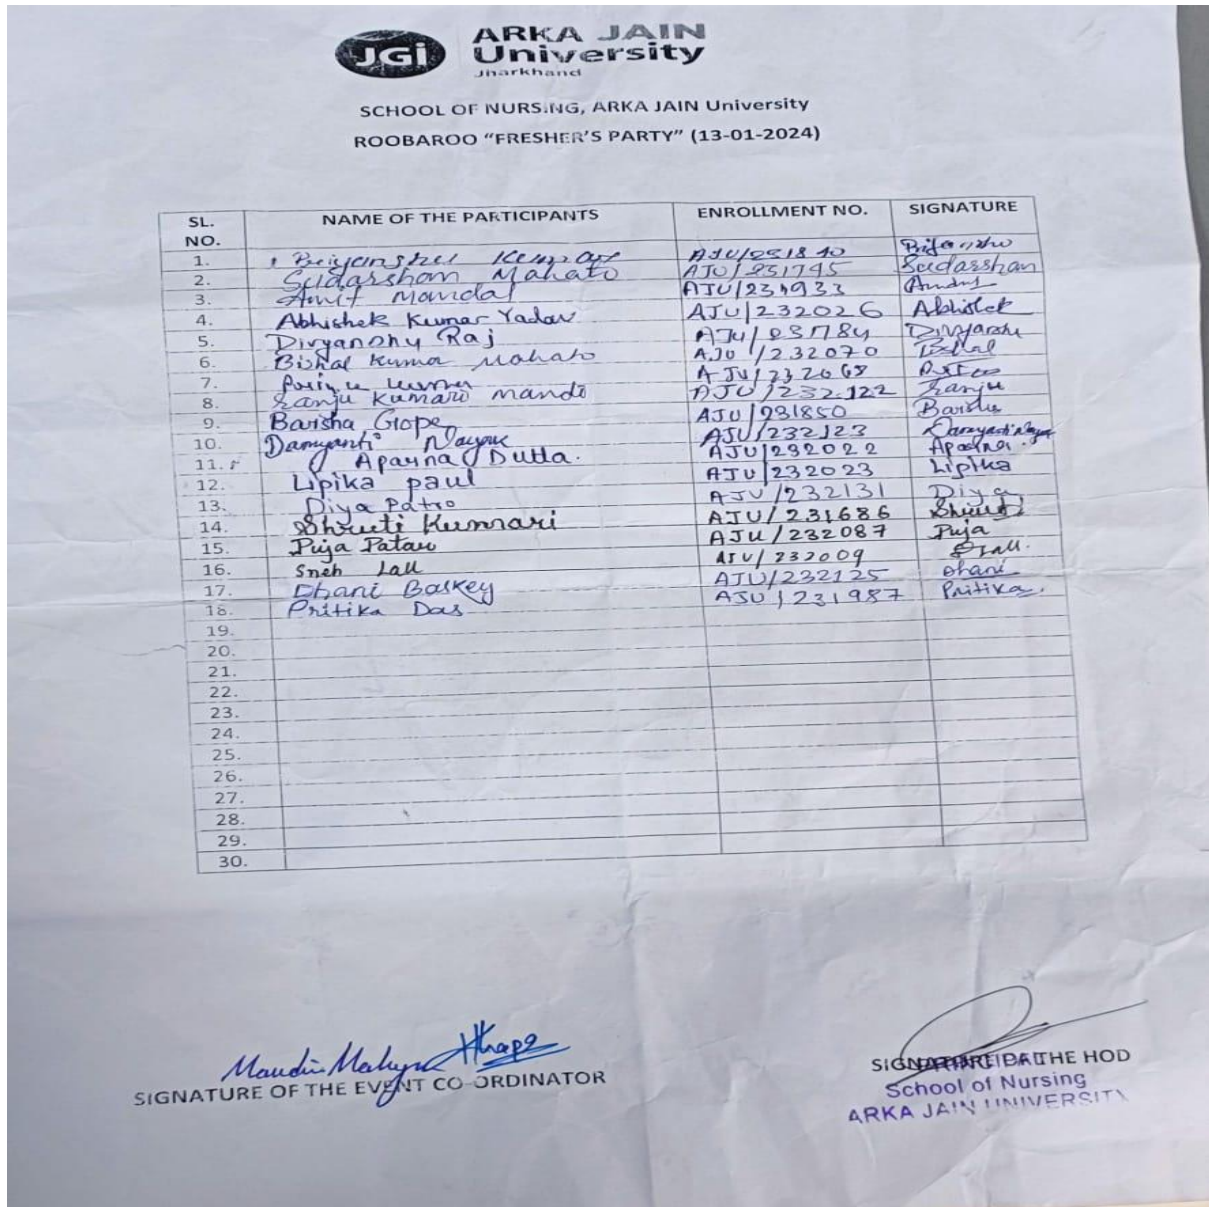 JGi
ARKA JAIN
University
Jharkhand
SCHOOL OF NURSING, ARKA JAIN University
ROOBAROO “FRESHER’S PARTY” (13-01-2024)
SL. NO. NAME OF THE PARTICIPANTS ENROLLMENT NO. SIGNATURE
1. Kumar
2. Sudarshan Mahato AJU/231745 Sudarshan
3. Amit Mandal
4. Abhishek Kumar Yadav AJU/232026 Abhishek
5. Divyanshu Raj AJU/231784 Divyanshu
6. Bishal Kuma Mahato AJU/232070 Bishal
7. AJU/232068
8. Sanju Kumari mandi AJU/232122 Sanju
9. Barsha Gope AJU/231850 Barsha
10. Damyanti Nayak AJU/232123 Damyanti Nayak
11. Aparna Dutta. AJU/232022 Aparna
12. Lipika paul AJU/232023 Lipika
13. Diya Patro AJU/232131 Diya
14. Shruti Kumari AJU/231686 Shruti
15. Puja Patar AJU/232087 Puja
16. Sneh Lall AJU/232009 SLall.
17. Dhani Baskey AJU/232125 Dhani
18. Pritika Das AJU/231987 Pritika.
19.
20.
21.
22.
23.
24.
25.
26.
27.
28.
29.
30.
SIGNATURE OF THE EVENT CO-ORDINATOR
SIGNATURE OF THE HOD
PRINCIPAL
School of Nursing
ARKA JAIN UNIVERSITY